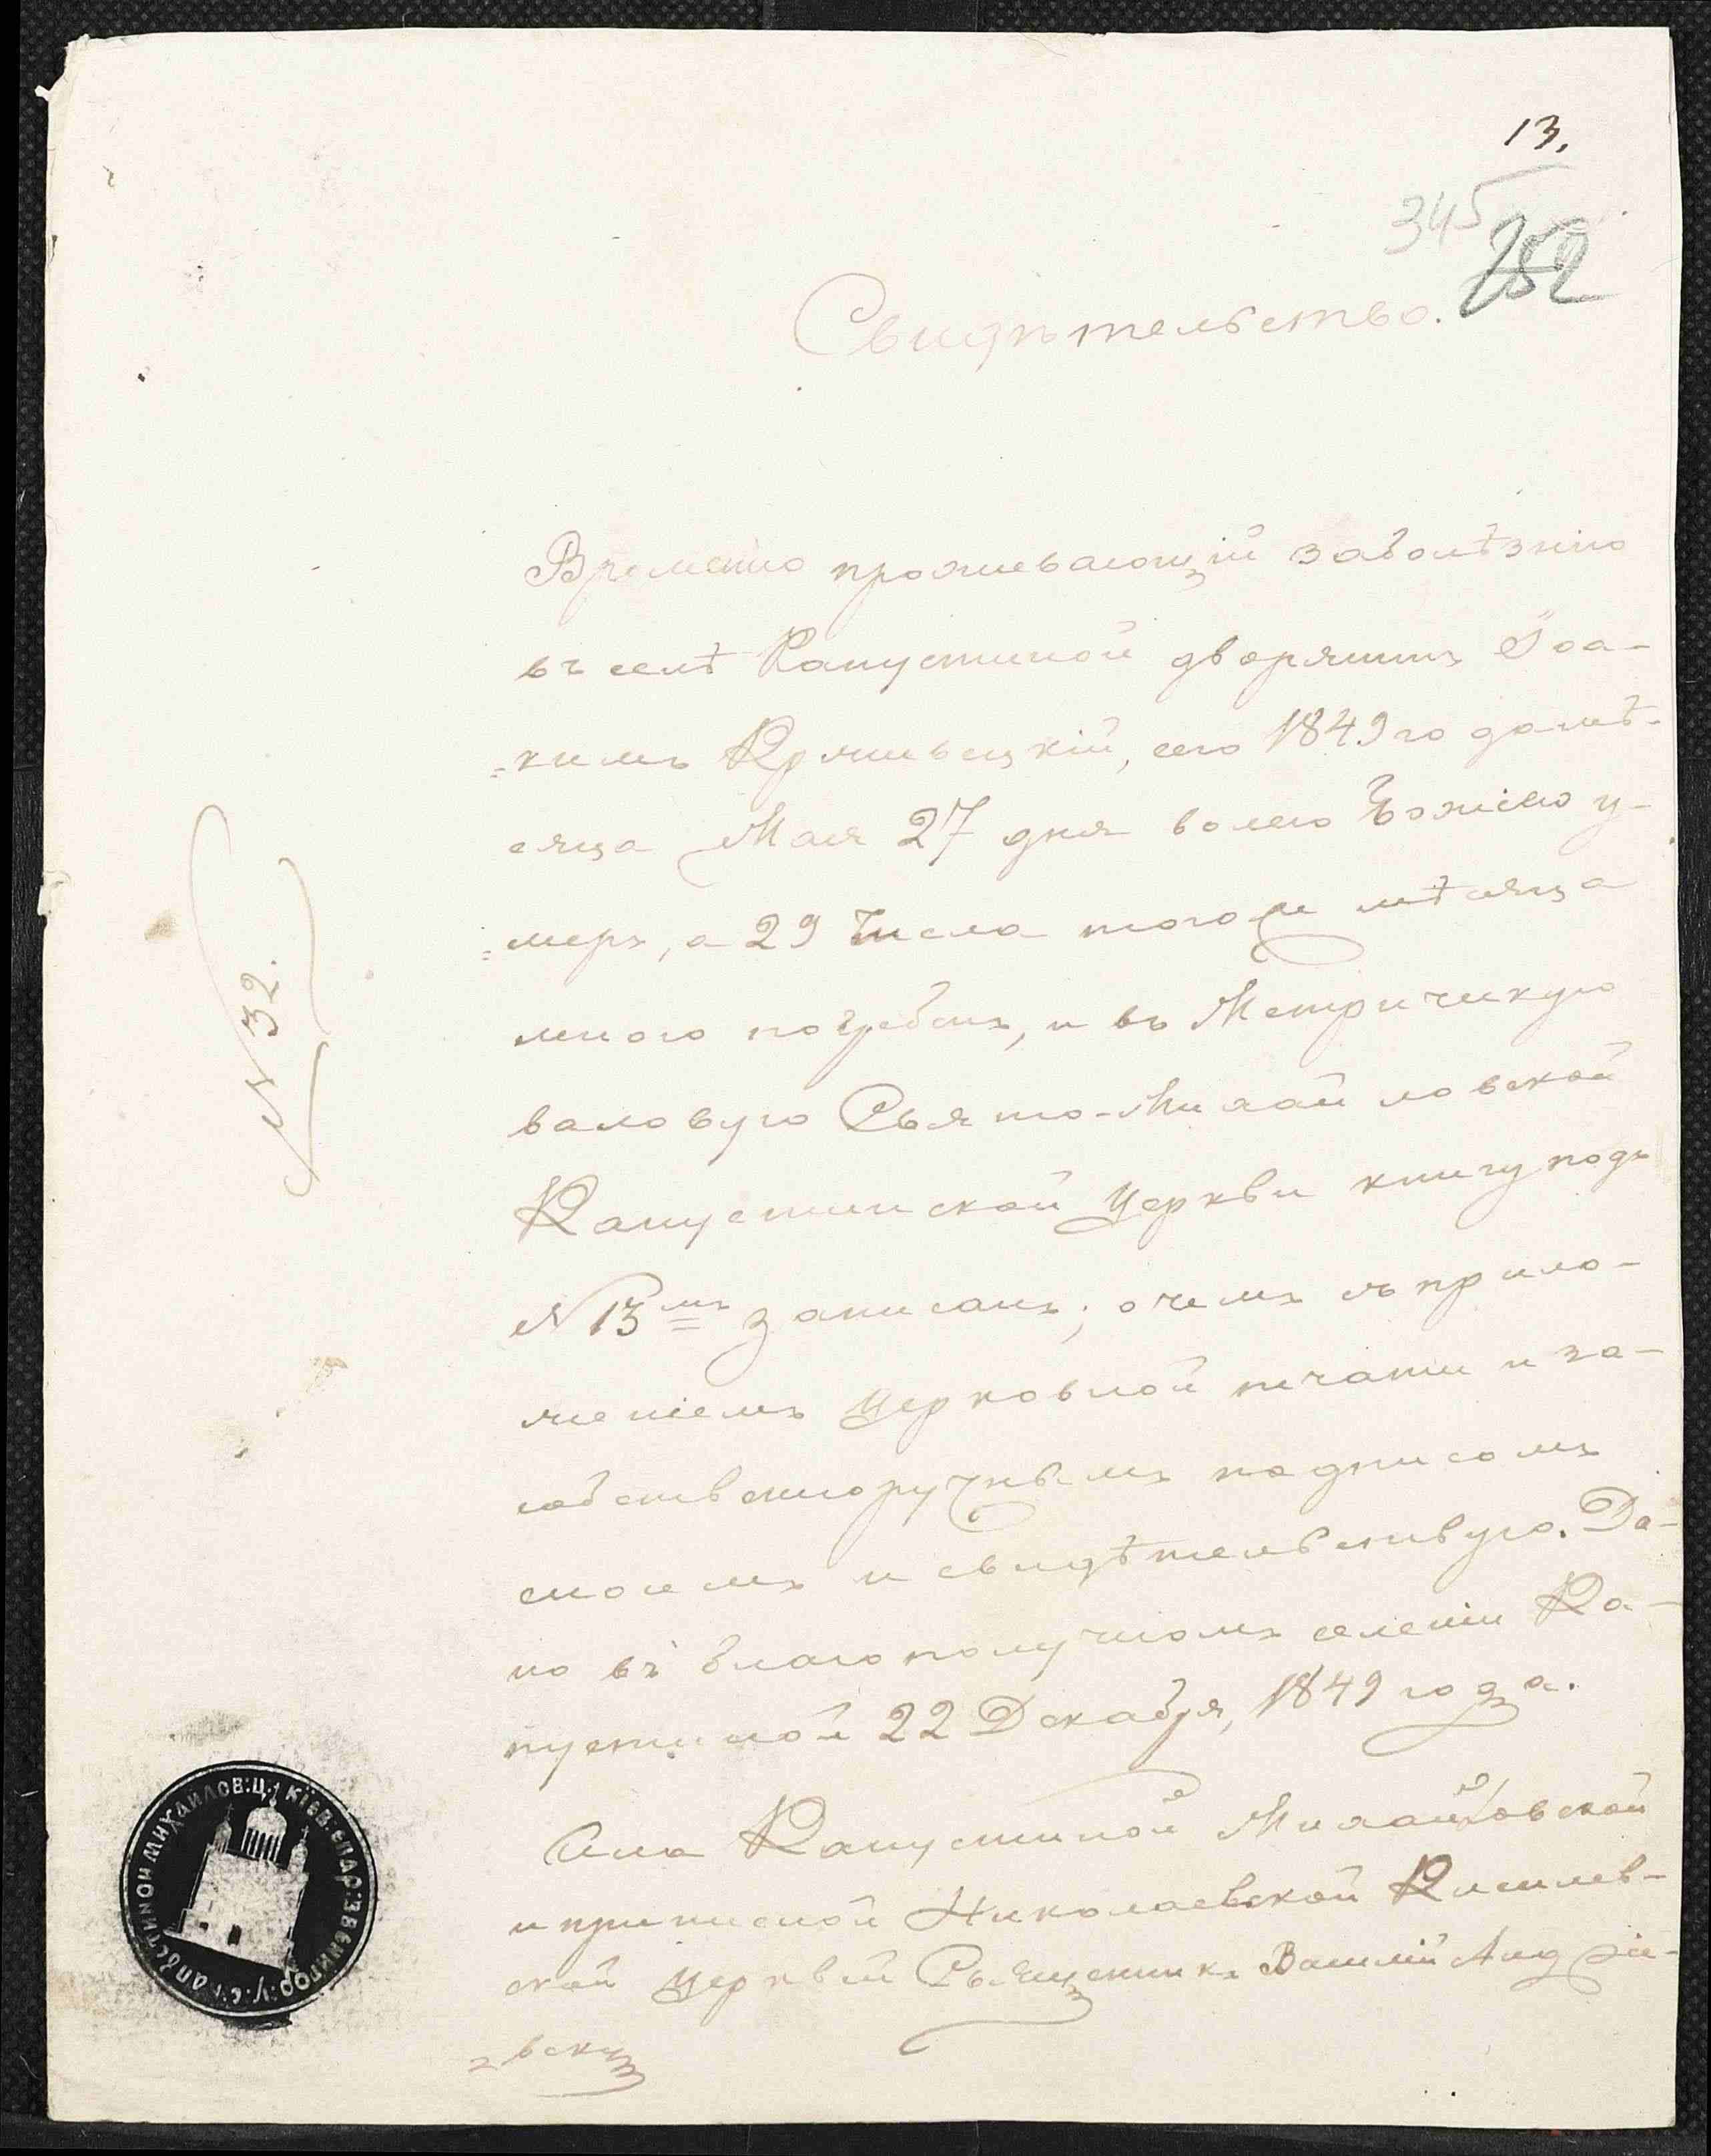 13.
345
252
Свидѣтельство.
Временно проживающій заболѣзнію
въ селѣ Капустиной дворянинъ Іоа-
кимъ Кришевецкій, сего 1849 года мѣ-
сяца Мая 27 дня волею Божіею у-
меръ, а 29 Числа тогоже мѣсяца
мною погребенъ, и въ Метричикую
валовую Свято-Михайловской
Капустинской Церкви книгу подъ
N 13мъ записанъ; очемъ съ прило-
женіемъ Церковной печати и за-
собственноручнымъ подписомъ
моимъ и свидѣтельствую. Да-
но въ благополучномъ селеніи Ка-
пустиной 22 Декабря, 1849 года.
N 32.
Села Капустиной Михайловской
и приписной Николаевской Кисилев-
ской Церквій Священникъ Василій Андріе-
вскій
КІЕВ: ЕПАР: ЗВЕНИГОР: У: С: КАПȢСТИНОЙ МИХАЙЛОВ: Ц: